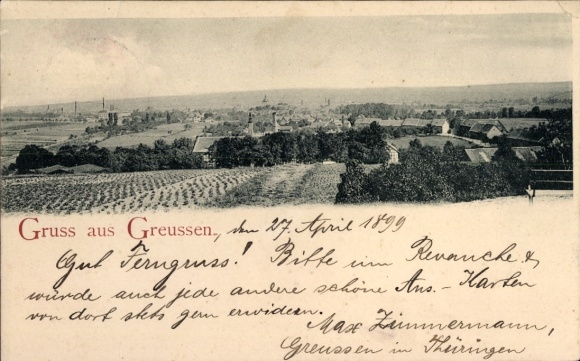 Gruss aus Greussen, den 27. April 1899
Gut Ferngruss! Bitte um Revanche &
würde auch jede andere schöne Ans.-Karten
von dort stets gern erwidern.
Max Zimmermann,
Greussen in Thüringen